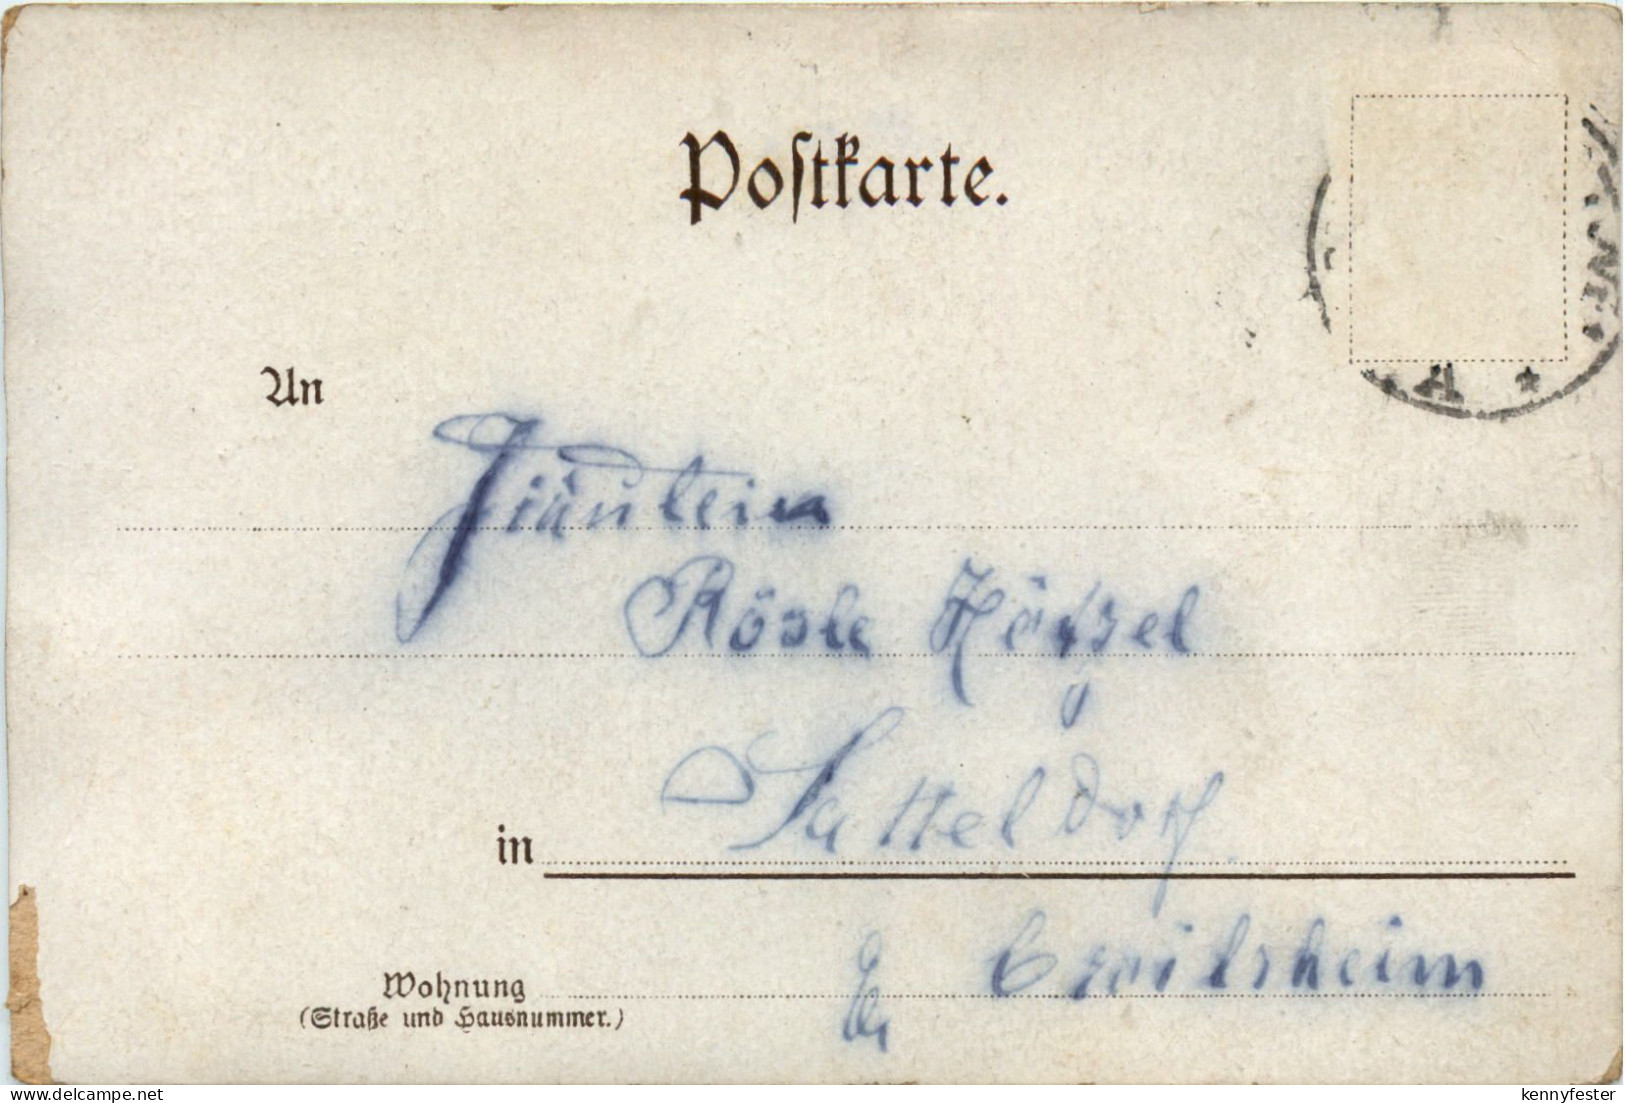 Postkarte.
An
Fräulein
Rösle
in Satteldorf
Crailsheim
Wohnung
(Straße und Hausnummer.)
delcampe.net
kennyfester